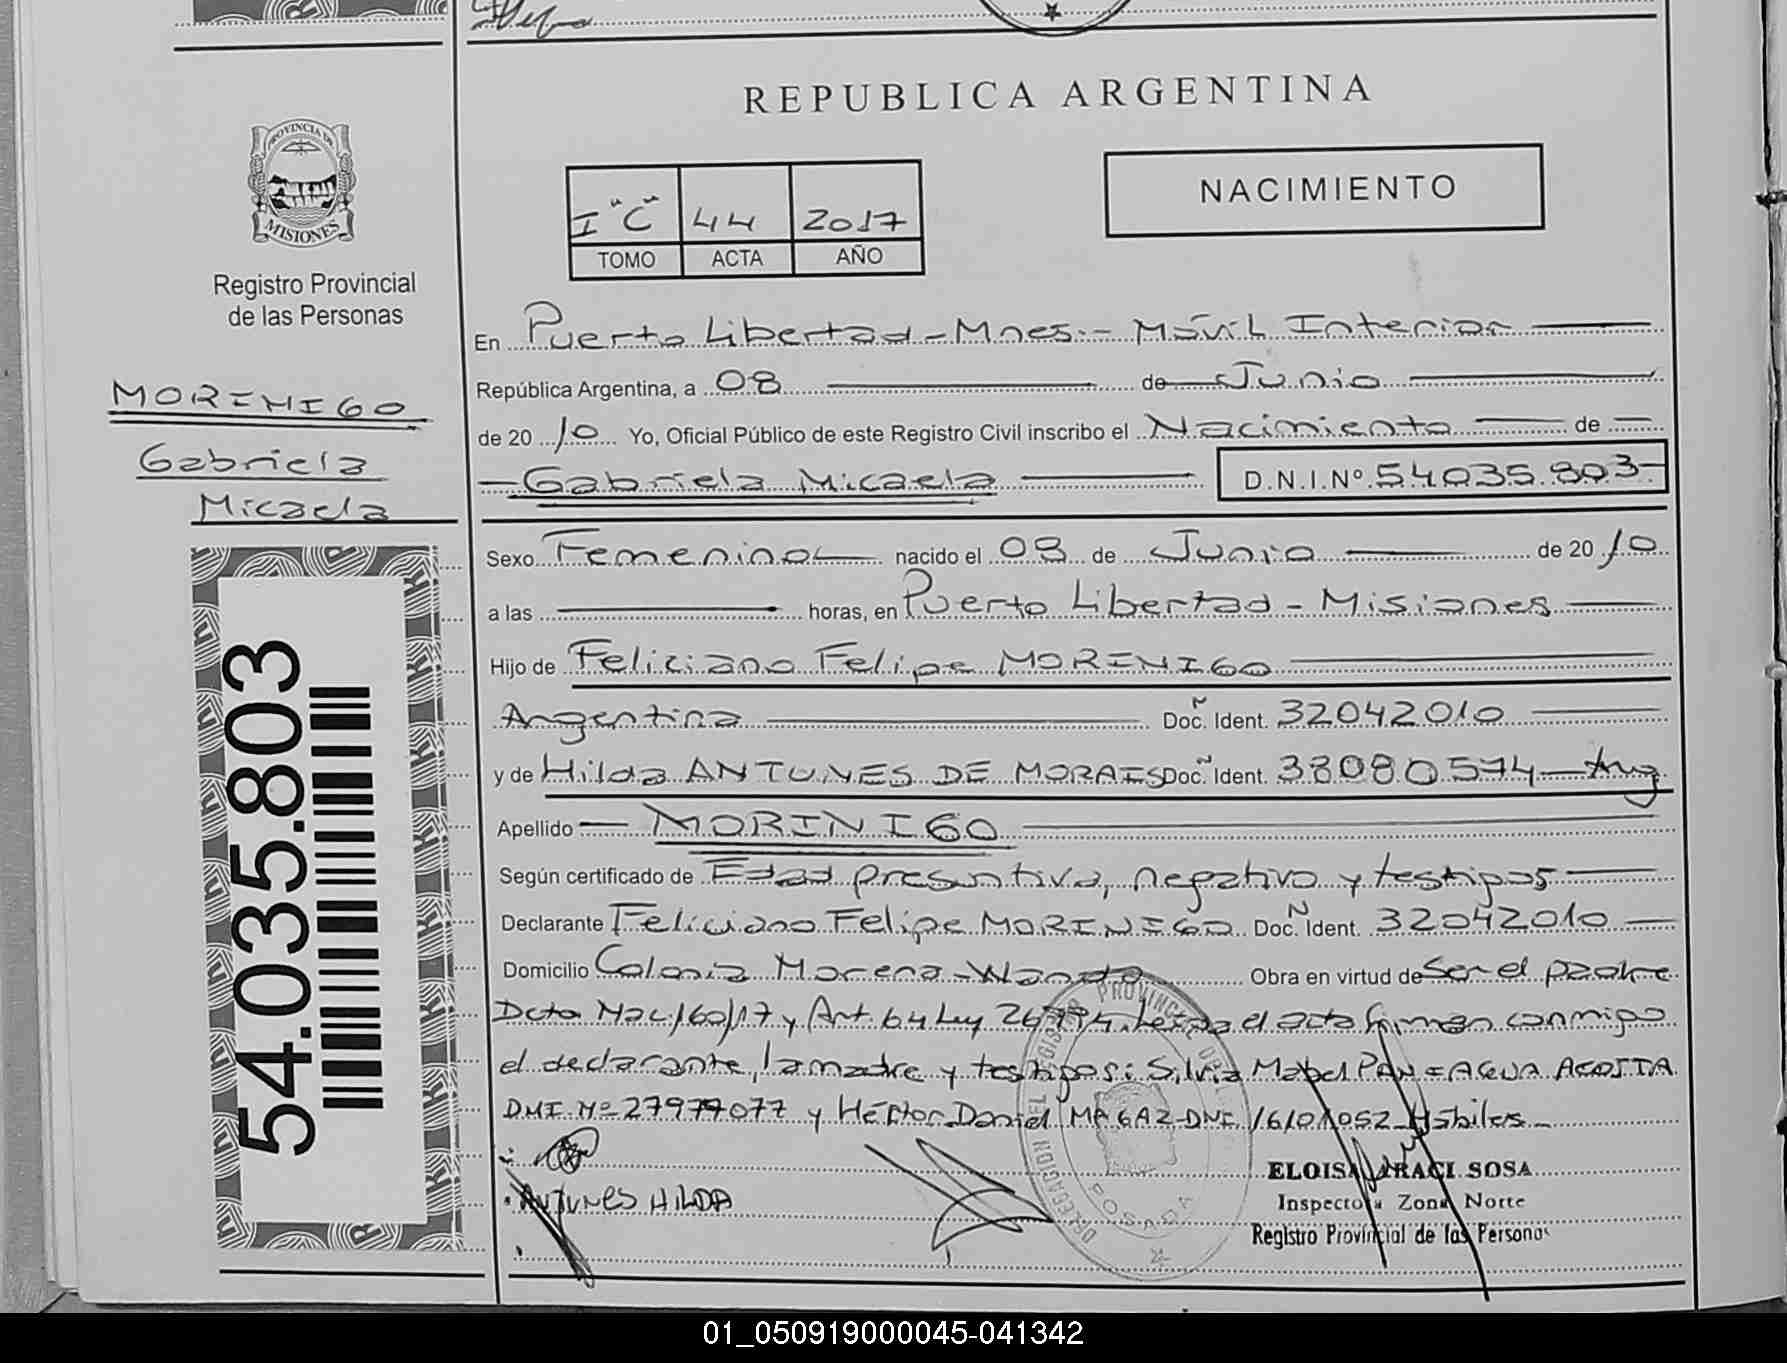 REPUBLICA ARGENTINA
PROVINCIA DE
MISIONES
Registro Provincial
de las Personas
I "C" 44 2017
TOMO ACTA AÑO
NACIMIENTO
MORINIGO
Gabriela
Micaela
54.035.803
En Puerto Libertad - Mnes. - Móvil Interior
República Argentina, a 08 de Junio
de 2010 Yo, Oficial Público de este Registro Civil inscribo el Nacimiento de
Gabriela Micaela D.N.I.Nº 54035.803
Sexo Femenino nacido el 08 de Junio de 2010
a las horas, en Puerto Libertad - Misiones
Hijo de Feliciano Felipe MORINIGO
Argentina Doc. Ident. 32042010
y de Hilda ANTUNES DE MORAES Doc. Ident. 38080574 - Arg
Apellido MORINIGO
Según certificado de Edad presuntiva, negativo y testigos
Declarante Feliciano Felipe MORINIGO Doc. Ident. 32042010
Domicilio Colonia Morena - Wanda Obra en virtud de Ser el padre
Dcto Nac/60/17 y Art. 64 Ley 26994. Leída el acta firman conmigo
el declarante, la madre y testigos: Silvia Mabel PANIAGUA ACOSTA
DNI Nº 27977077 y Héctor Daniel DNI 16101052 Hábiles
ANTUNES HILDA
ELOISA ARACI SOSA
Inspectora Zona Norte
Registro Provincial de las Personas
01_050919000045-041342